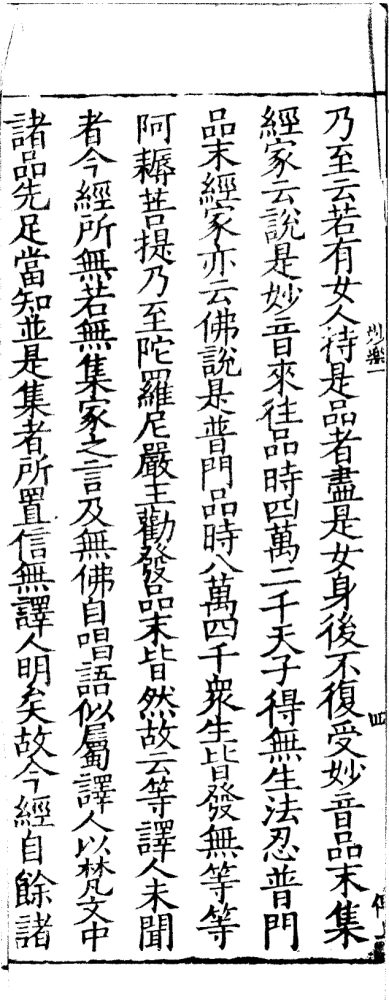 乃至云若有女人持是品者盡是女身後不復受妙音品末集
經家云說是妙音來往品時四萬二千天子得無生法忍普門
品末經家亦云佛說是普門品時八萬四千衆生皆發無等等
阿耨菩提乃至陀羅尼嚴王勸發品末皆然故云等譯人未聞
者今經所無若無集家之言及無佛自唱語似屬譯人以梵文中
諸品先足當知並是集者所置信無譯人明矣故今經自餘諸